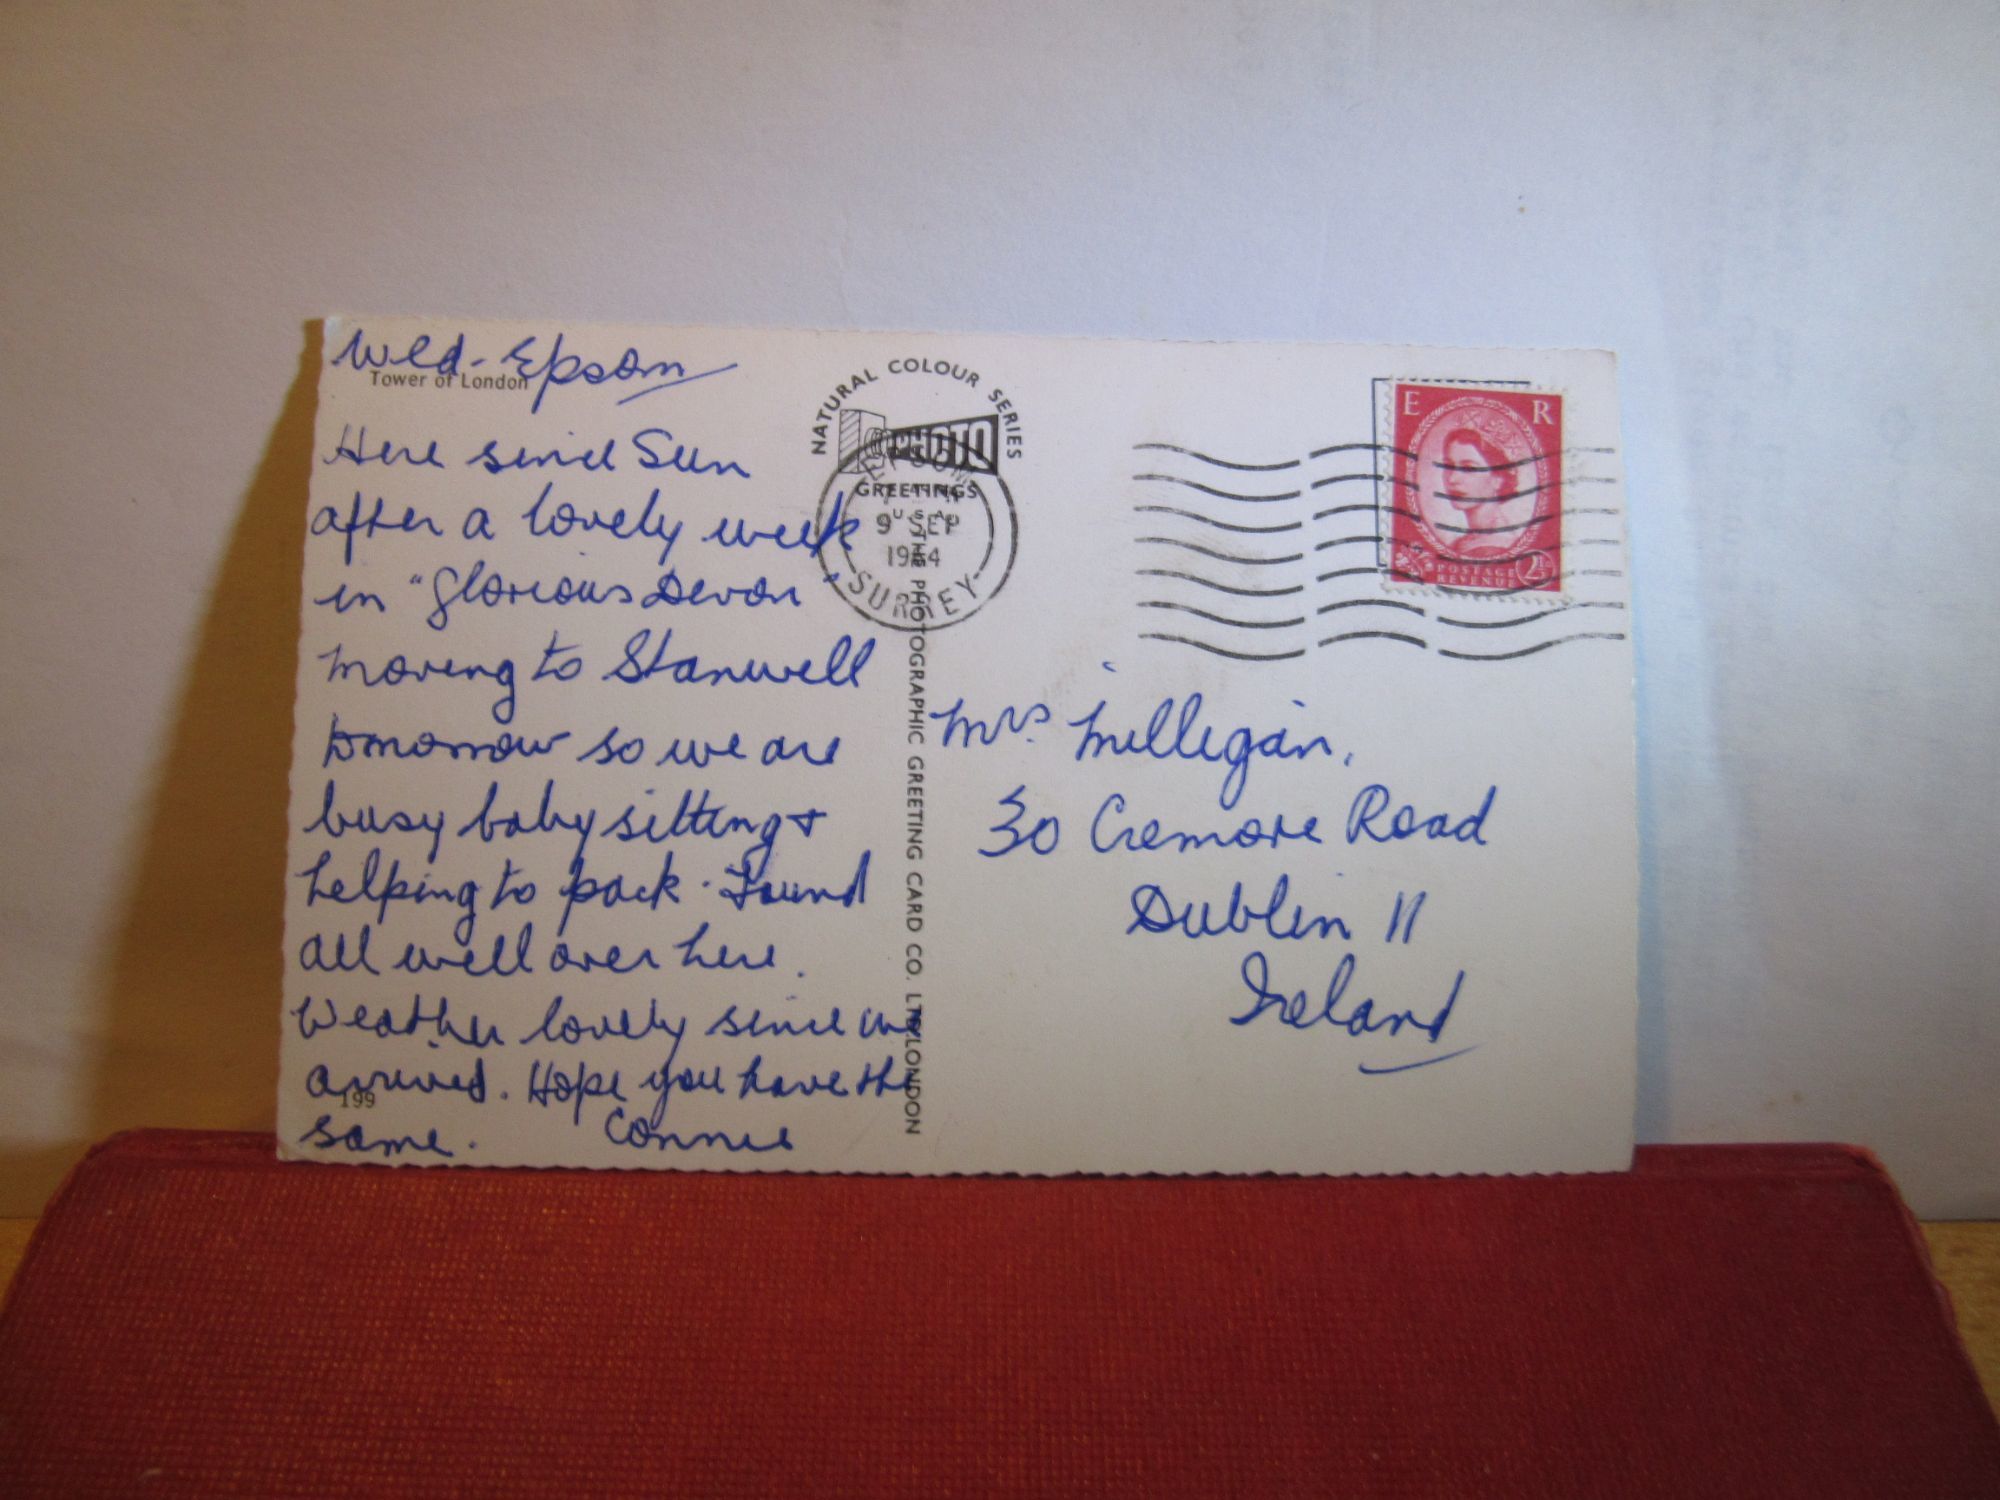 Wed - Epsom
Tower of London
Here since Sun
after a lovely week
in "Glorious Devon"
Moving to Stanwell
tomorrow so we are
busy baby sitting +
helping to pack. Found
all well over here.
Weather lovely since we
arrived. Hope you have the
same. Connie
199
NATURAL COLOUR SERIES
PHOTO
GREETINGS
THE PHOTOGRAPHIC GREETING CARD CO. LTD. LONDON
EPSOM
9 SEP
1964
SURREY
E R
POSTAGE
REVENUE
2½
Mrs. Milligan,
30 Cremore Road
Dublin 11
Ireland